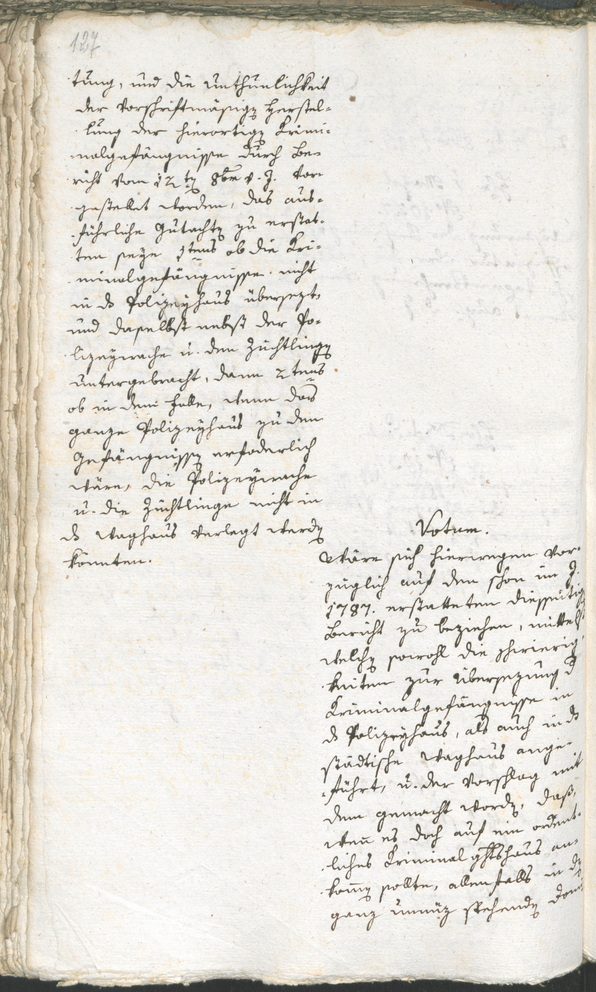 127
tung, und die unthunlichkeit
der vorschriftmäsigen Herstel-
lung der hierortigen Krimi-
nalgefängnisse durch Be-
richt vom 12ten 8ber v. J. vor-
gestellt worden, das aus-
führliche Gutachten zu erstat-
ten seye, 1tens ob die Kri-
minalgefängnisse nicht
in das Polizeyhaus übersezt,
und daselbst nebst der Po-
lizeywache u. den Züchtlingen
untergebracht, dann 2tens
ob in dem Falle, wenn das
ganze Polizeyhaus zu den
Gefängnissen erforderlich
wäre, die Polizeywache
u. die Züchtlinge nicht in
das Waghaus verlegt werden
könnten.
Votum.
Wäre sich hierwegen vor-
züglich auf den schon im J.
1787. erstatteten diesseitigen
Bericht zu beziehen, mittels
welchen sowohl die schwierig-
keiten zur Übersezung der
Kriminalgefängnisse in
das Polizeyhaus, als auch in das
städtische Waghaus ange-
führt, u. der Vorschlag mit
dem gemacht worden, daß,
wenn es doch auf ein ordent-
liches Kriminal ghtshaus an-
komen sollte, allenfalls in den
ganz unnüz stehenden